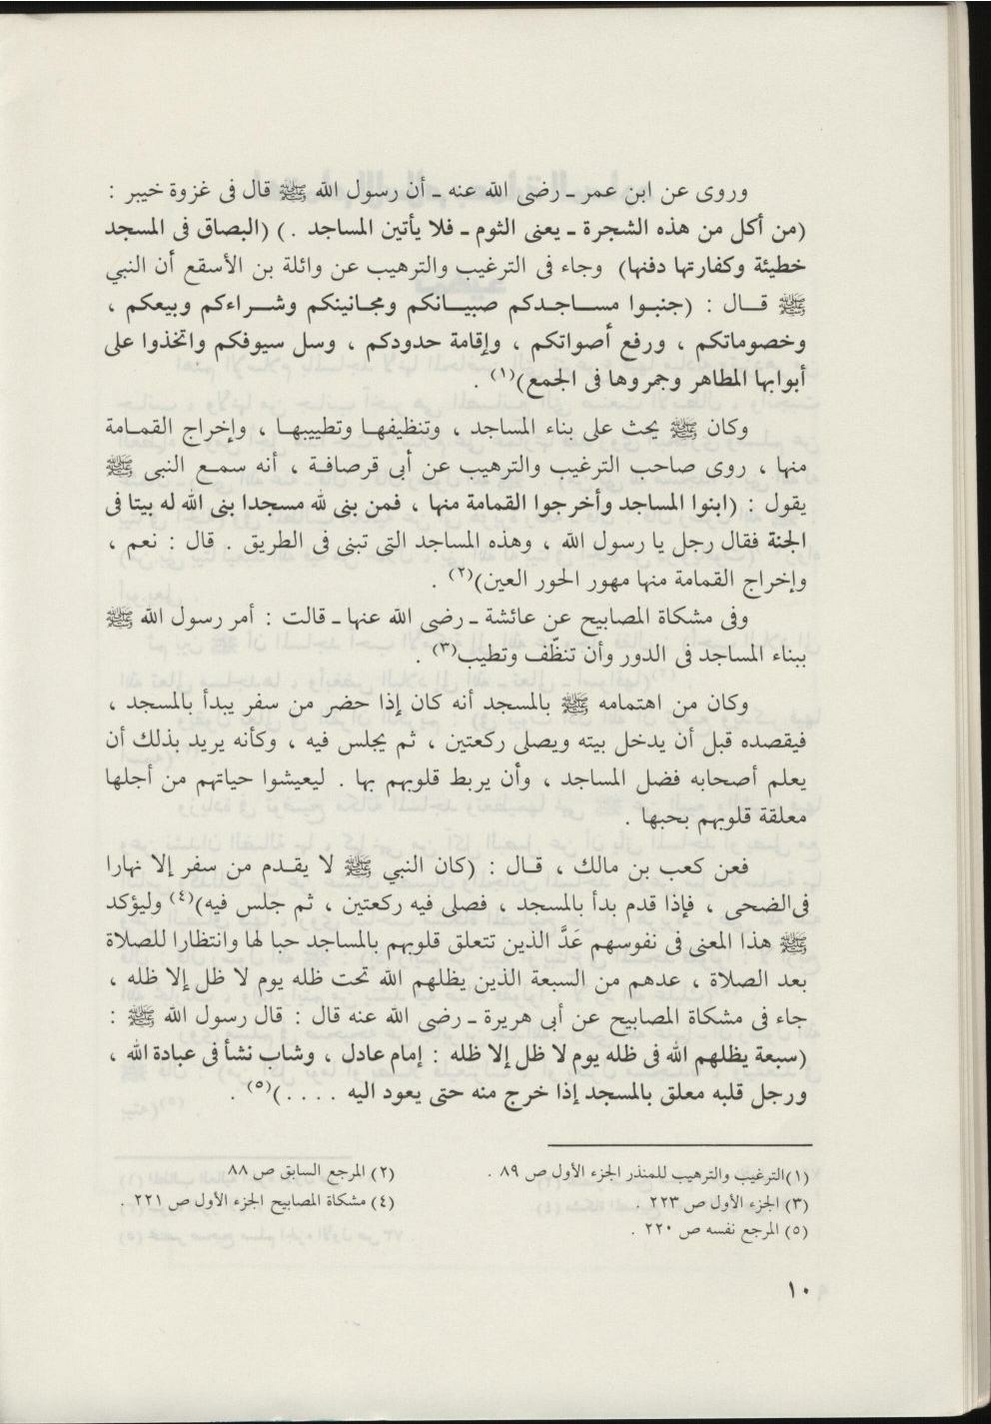 وروى عن ابن عمر ـ رضى الله عنه ـ أن رسول الله ﷺ قال فى غزوة خيبر :
(من أكل من هذه الشجرة ـ يعنى الثوم ـ فلا يأتين المساجد . ) (البصاق فى المسجد
خطيئة وكفارتها دفنها) وجاء فى الترغيب والترهيب عن واثلة بن الأسقع أن النبي
ﷺ قال : (جنبوا مساجدكم صبيانكم ومجانينكم وشراءكم وبيعكم ،
وخصوماتكم ، ورفع أصواتكم ، وإقامة حدودكم ، وسل سيوفكم واتخذوا على
أبوابها المطاهر وجمروها فى الجمع)(١) .
وكان ﷺ يحث على بناء المساجد ، وتنظيفها وتطييبها ، وإخراج القمامة
منها ، روى صاحب الترغيب والترهيب عن أبى قرصافة ، أنه سمع النبى ﷺ
يقول : (ابنوا المساجد وأخرجوا القمامة منها ، فمن بنى لله مسجدا بنى الله له بيتا فى
الجنة فقال رجل يا رسول الله ، وهذه المساجد التى تبنى فى الطريق . قال : نعم ،
وإخراج القمامة منها مهور الحور العين)(٢) .
وفى مشكاة المصابيح عن عائشة ـ رضى الله عنها ـ قالت : أمر رسول الله ﷺ
ببناء المساجد فى الدور وأن تنظّف وتطيب(٣) .
وكان من اهتمامه ﷺ بالمسجد أنه كان إذا حضر من سفر يبدأ بالمسجد ،
فيقصده قبل أن يدخل بيته ويصلى ركعتين ، ثم يجلس فيه ، وكأنه يريد بذلك أن
يعلم أصحابه فضل المساجد ، وأن يربط قلوبهم بها . ليعيشوا حياتهم من أجلها
معلقة قلوبهم بحبها .
فعن كعب بن مالك ، قال : (كان النبي ﷺ لا يقدم من سفر إلا نهارا
فى الضحى ، فإذا قدم بدأ بالمسجد ، فصلى فيه ركعتين ، ثم جلس فيه)(٤) وليؤكد
ﷺ هذا المعنى فى نفوسهم عَدَّ الذين تتعلق قلوبهم بالمساجد حبا لها وانتظارا للصلاة
بعد الصلاة ، عدهم من السبعة الذين يظلهم الله تحت ظله يوم لا ظل إلا ظله ،
جاء فى مشكاة المصابيح عن أبى هريرة ـ رضى الله عنه قال : قال رسول الله ﷺ :
(سبعة يظلهم الله فى ظله يوم لا ظل إلا ظله : إمام عادل ، وشاب نشأ فى عبادة الله ،
ورجل قلبه معلق بالمسجد إذا خرج منه حتى يعود اليه . . . . )(٥) .
(١)الترغيب والترهيب للمنذر الجزء الأول ص ٨٩ .
(٢) المرجع السابق ص ٨٨
(٣) الجزء الأول ص ٢٢٣ .
(٤) مشكاة المصابيح الجزء الأول ص ٢٢١ .
(٥) المرجع نفسه ص ٢٢٠ .
١٠